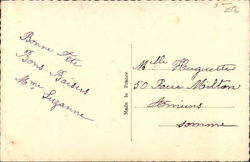 Bonne Fête
Bons Baisers
Mme Suzanne
Made in France
Melle Huguette
50 Rue Milton
Amiens
Somme